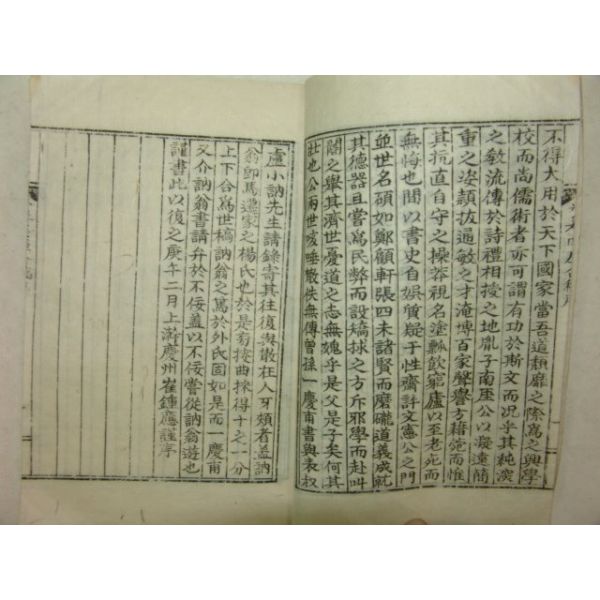 不得大用於天下國家當吾道頹靡之際爲之興學
校而尚儒術者亦可謂有功於斯文而況乎其純深
之敎流傳於詩禮相授之地胤子南厓公以凝遠簡
重之姿穎拔過敏之才淹博百家聲譽方籍菀而惟
其抗直自守之操莽視名塗瓢飮窮廬以至老死而
無悔也間以書史自娛質疑于性齋許文憲公之門
並世名碩如鄭顧軒張四未諸賢而磨礲道義成就
其德器且嘗爲民弊而設矯捄之方斥邪學而赴叫
閤之擧其濟世憂道之志無媿乎是父是子矣何其
壯也公兩世咳唾散佚無傳曾孫一慶甫書與表叔
盧小訥先生請錄寄其往復與散在人牙頰者盖訥
翁卽馬遷家之楊氏也於是蒭掇曲採得十之一分
上下合爲世稿訥翁之篤於外氏固如是而一慶甫
又介訥翁書請弁於不佞盖以不佞嘗從訥翁遊也
謹書此以復之庚午二月上澣慶州崔鍾應謹序